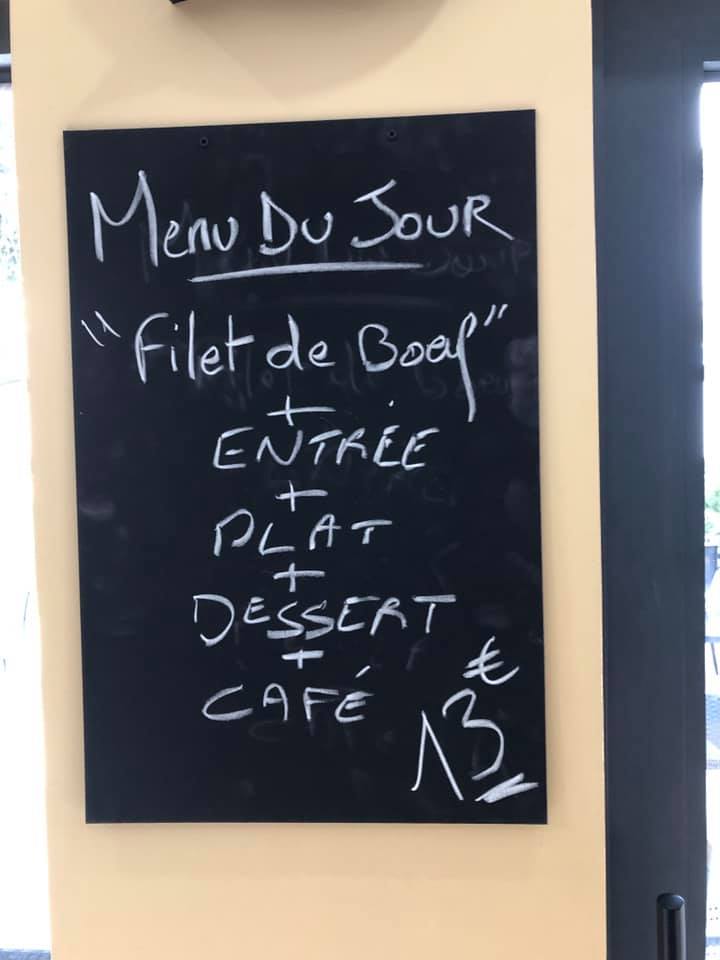 Menu Du Jour
"Filet de Boeuf"
+
ENTRÉE
+
PLAT
+
DESSERT
+
CAFÉ
€
13